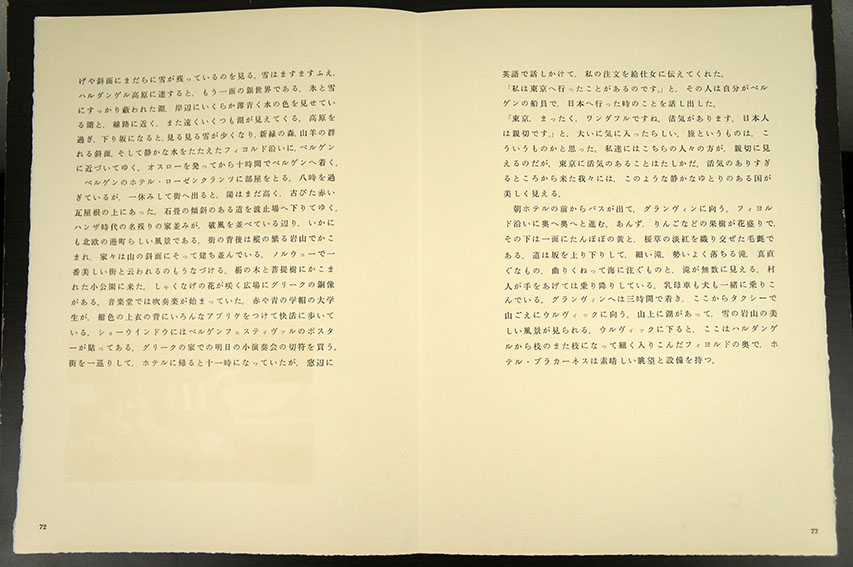 げや斜面にまだらに雪が残っているのを見る。雪はますますふえ、
ハルダンゲル高原に達すると、もう一面の銀世界である。氷と雪
にすっかり蔽われた湖、岸辺にいくらか薄青く水の色を見せてい
る湖と、線路に近く、また遠くいくつも湖が見えてくる。高原を
過ぎ、下り坂になると、見る見る雪が少くなり、新緑の森、山羊の群
れる斜面、そして静かな水をたたえたフィヨルド沿いに、ベルゲン
に近づいてゆく。オスローを発ってから十時間でベルゲンへ着く。
ベルゲンのホテル・ローゼンクランツに部屋をとる。八時を過
ぎているが、一休みして街へ出ると、陽はまだ高く、古びた赤い
瓦屋根の上にあった。石畳の傾斜のある道を波止場へ下りてゆく。
ハンザ時代の名残りの家並みが、破風を並べている辺り、いかに
も北欧の港町らしい風景である。街の背後は樅の繁る岩山でかこ
まれ、家々は山の斜面にそって建ち並んでいる。ノルウェーで一
番美しい街と云われるのもうなづける。栃の木と菩提樹にかこま
れた小公園に来た。しゃくなげの花が咲く広場にグリークの銅像
がある。音楽堂では吹奏楽が始まっていた。赤や青の学帽の大学
生が、紺色の上衣の背にいろんなアプリケをつけて快活に歩いて
いる。ショーウインドウにはベルゲンフェスティヴァルのポスタ
ーが貼ってある。グリークの家での明日の小演奏会の切符を買う。
街を一巡りして、ホテルに帰ると十一時になっていたが、窓辺に
72
英語で話しかけて、私の注文を給仕女に伝えてくれた。
「私は東京へ行ったことがあるのです。」と、その人は自分がベル
ゲンの船員で、日本へ行った時のことを話し出した。
「東京、まったく、ワンダフルですね。活気があります。日本人
は親切です。」と、大いに気に入ったらしい。旅というものは、こ
ういうものかと思った。私達にはこちらの人々の方が、親切に見
えるのだが、東京に活気のあることはたしかだ。活気のありすぎ
るところから来た我々には、このような静かなゆとりのある国が
美しく見える。
朝ホテルの前からバスが出て、グランヴィンに向う。フィヨル
ド沿いに奥へ奥へと進む。あんず、りんごなどの果樹が花盛りで、
その下は一面にたんぽぽの黄と、桜草の淡紅を織り交ぜた毛氈で
ある。道は坂を上り下りして、細い滝、勢いよく落ちる滝、真直
ぐなもの、曲りくねって海に注ぐものと、滝が無数に見える。村
人が手をあげては乗り降りしている。乳母車も犬も一緒に乗りこ
んでいる。グランヴィンへは三時間で着き、ここからタクシーで
山ごえにウルヴィックに向う。山上に湖があって、雪の岩山の美
しい風景が見られる。ウルヴィックに下ると、ここはハルダンゲ
ルから枝のまた枝になって細く入りこんだフィヨルドの奥で、ホ
テル・ブラカーネスは素晴しい眺望と設備を持つ。
77